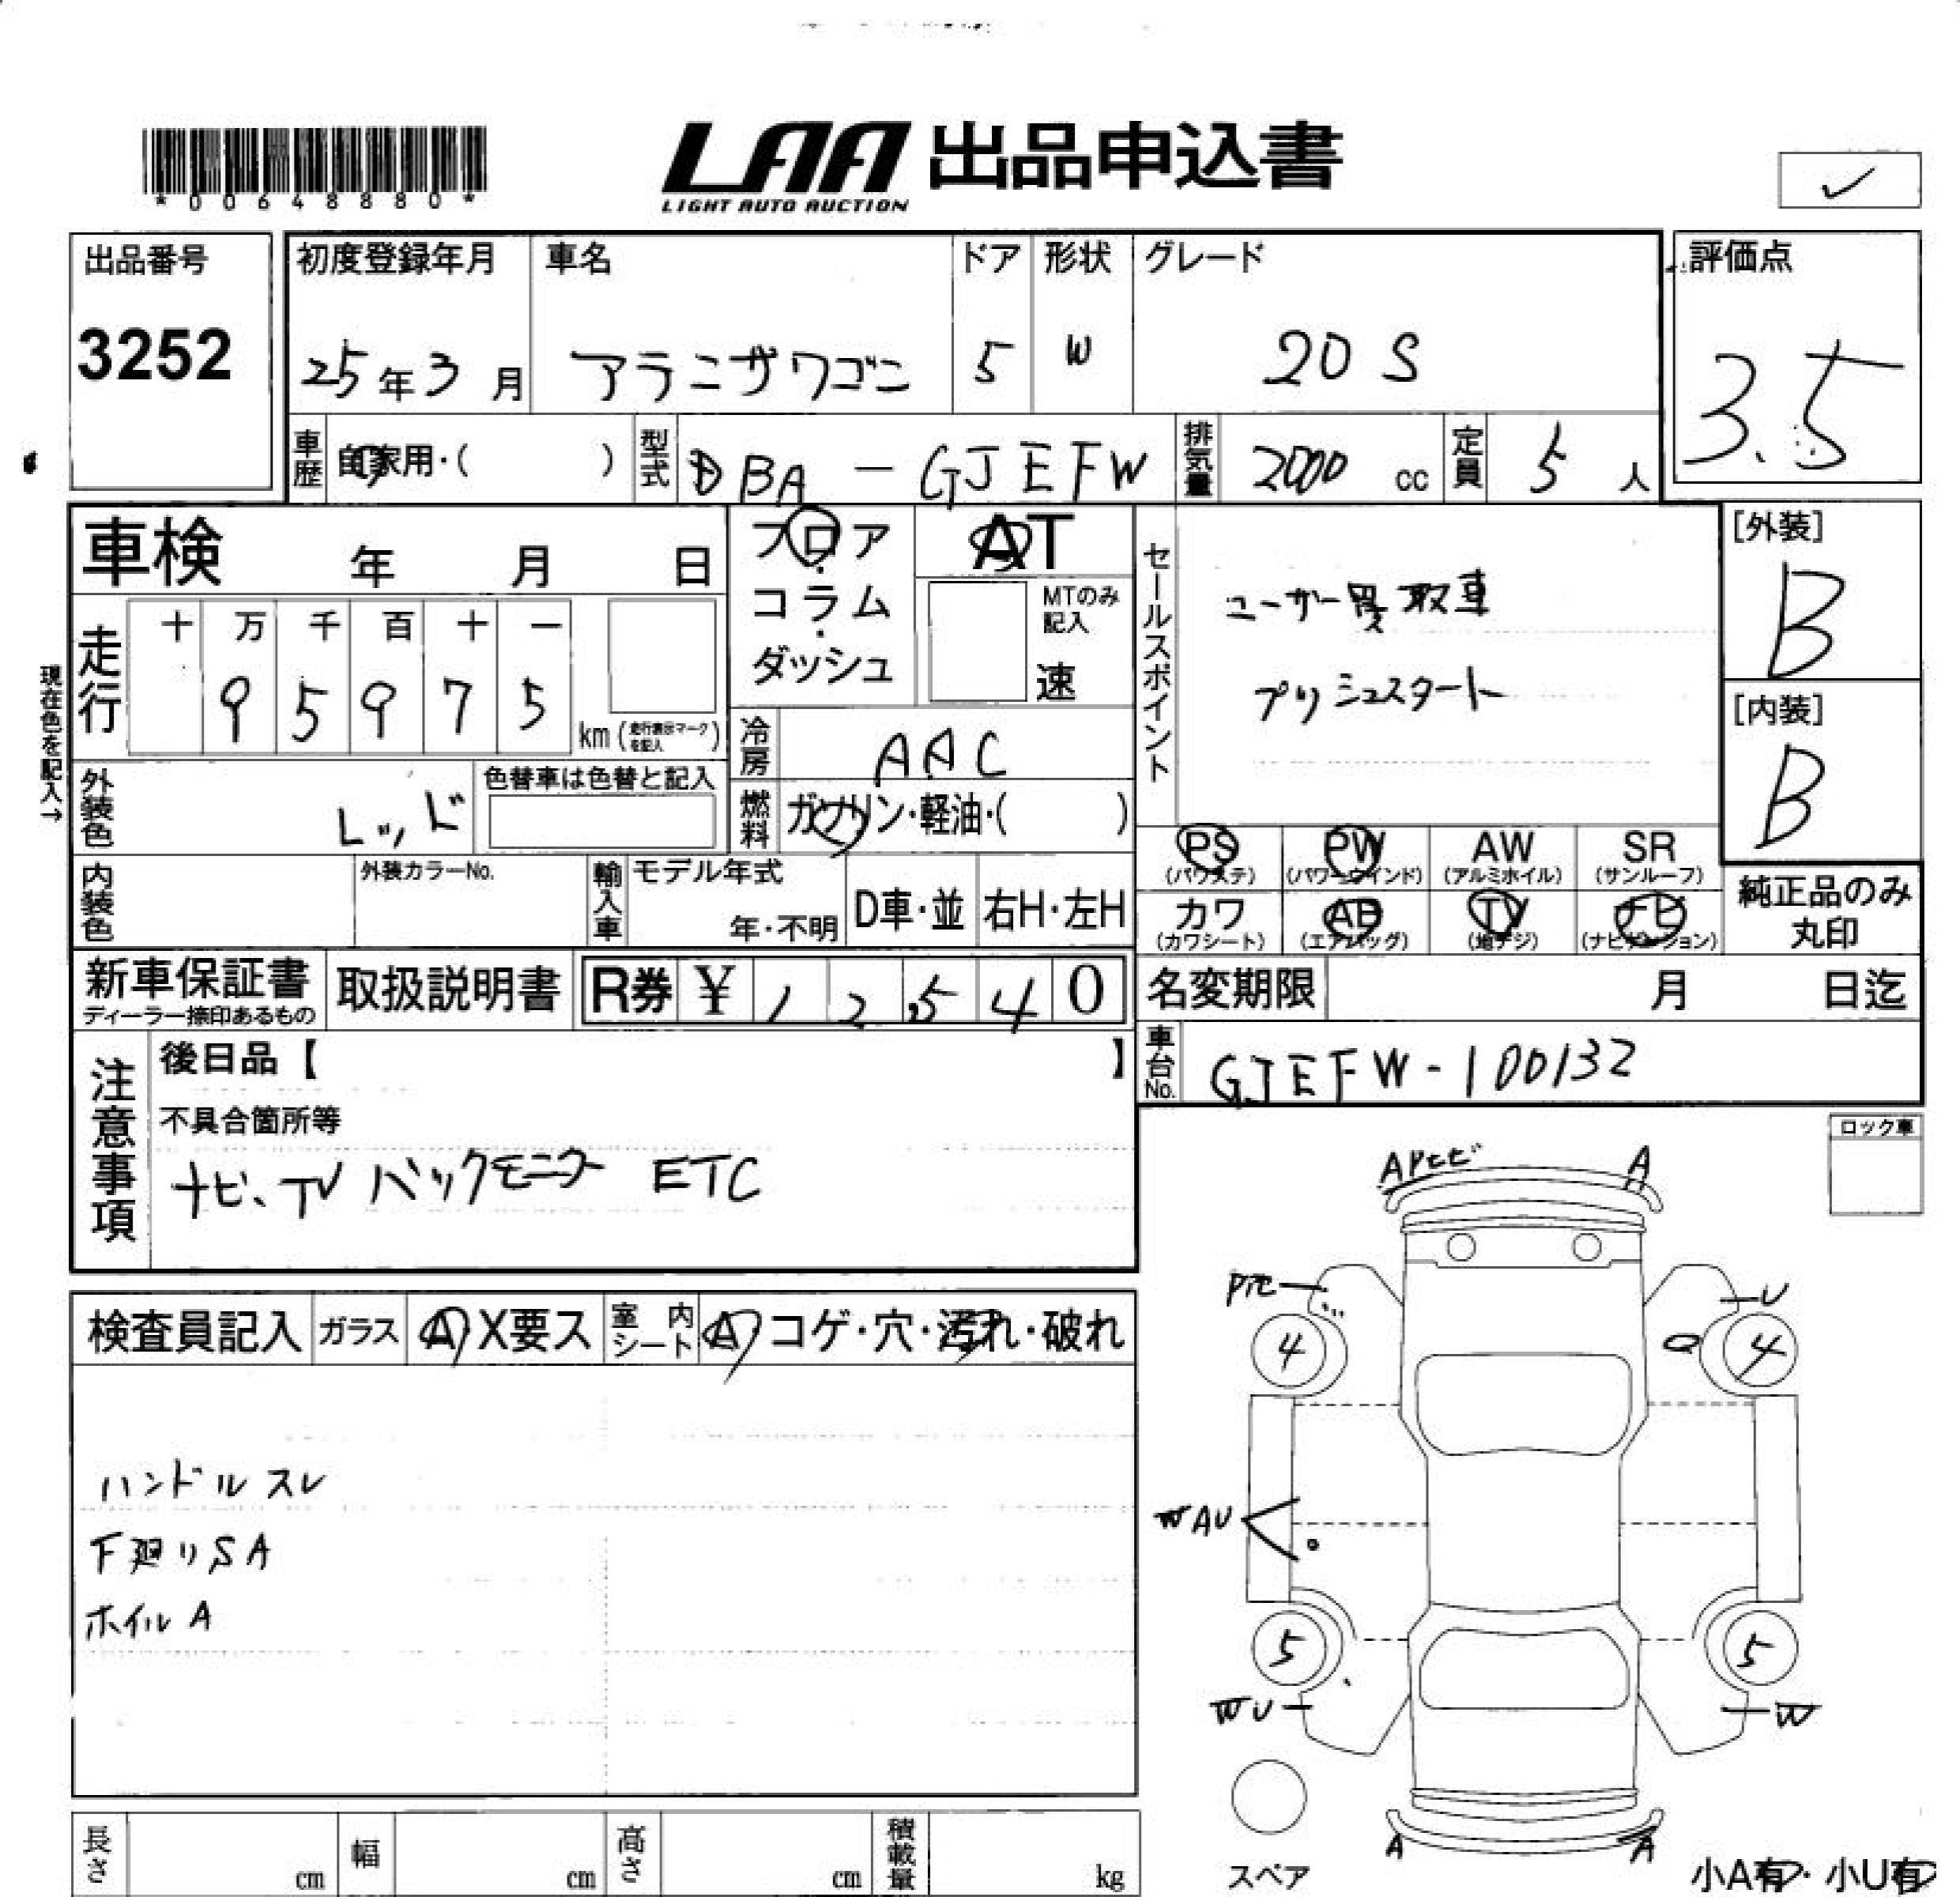 *00648880*
LAA 出品申込書
LIGHT AUTO AUCTION
✓
出品番号
3252
初度登録年月
25年3月
車名
アテンザワゴン
ドア
5
形状
W
グレード
20S
評価点
3.5
車歴 自家用・( )
型式 DBA-GJEFW
排気量 2000 cc
定員 5 人
車検 年 月 日
フロア・コラム・ダッシュ
AT
MTのみ記入
速
セールスポイント
ユーザー買取車
プッシュスタート
[外装]
B
[内装]
B
現在色を記入→
走行
十 万 千 百 十 一
9 5 9 7 5
km (走行表示マークを記入)
冷房 AAC
外装色 レッド
色替車は色替と記入
燃料 ガソリン・軽油・( )
PS (パワステ)
PW (パワーウインド)
AW (アルミホイル)
SR (サンルーフ)
カワ (カワシート)
AB (エアバッグ)
TV (地デジ)
ナビ (ナビゲーション)
純正品のみ丸印
内装色
外装カラーNo.
輸入車
モデル年式
年・不明
D車・並
右H・左H
新車保証書
ディーラー捺印あるもの
取扱説明書
R券 ¥ 1 2 5 4 0
名変期限 月 日迄
車台No. GJEFW-100132
注意事項
後日品【 】
不具合箇所等
ナビ、TV バックモニター ETC
ロック車
検査員記入
ガラス A X要ス
室内シート A コゲ・穴・汚れ・破れ
ハンドルスレ
下廻りSA
ホイルA
A
A
U
4
4
WAU
5
5
WU
W
A
A
スペア
小A有・小U有
長さ cm
幅 cm
高さ cm
積載量 kg